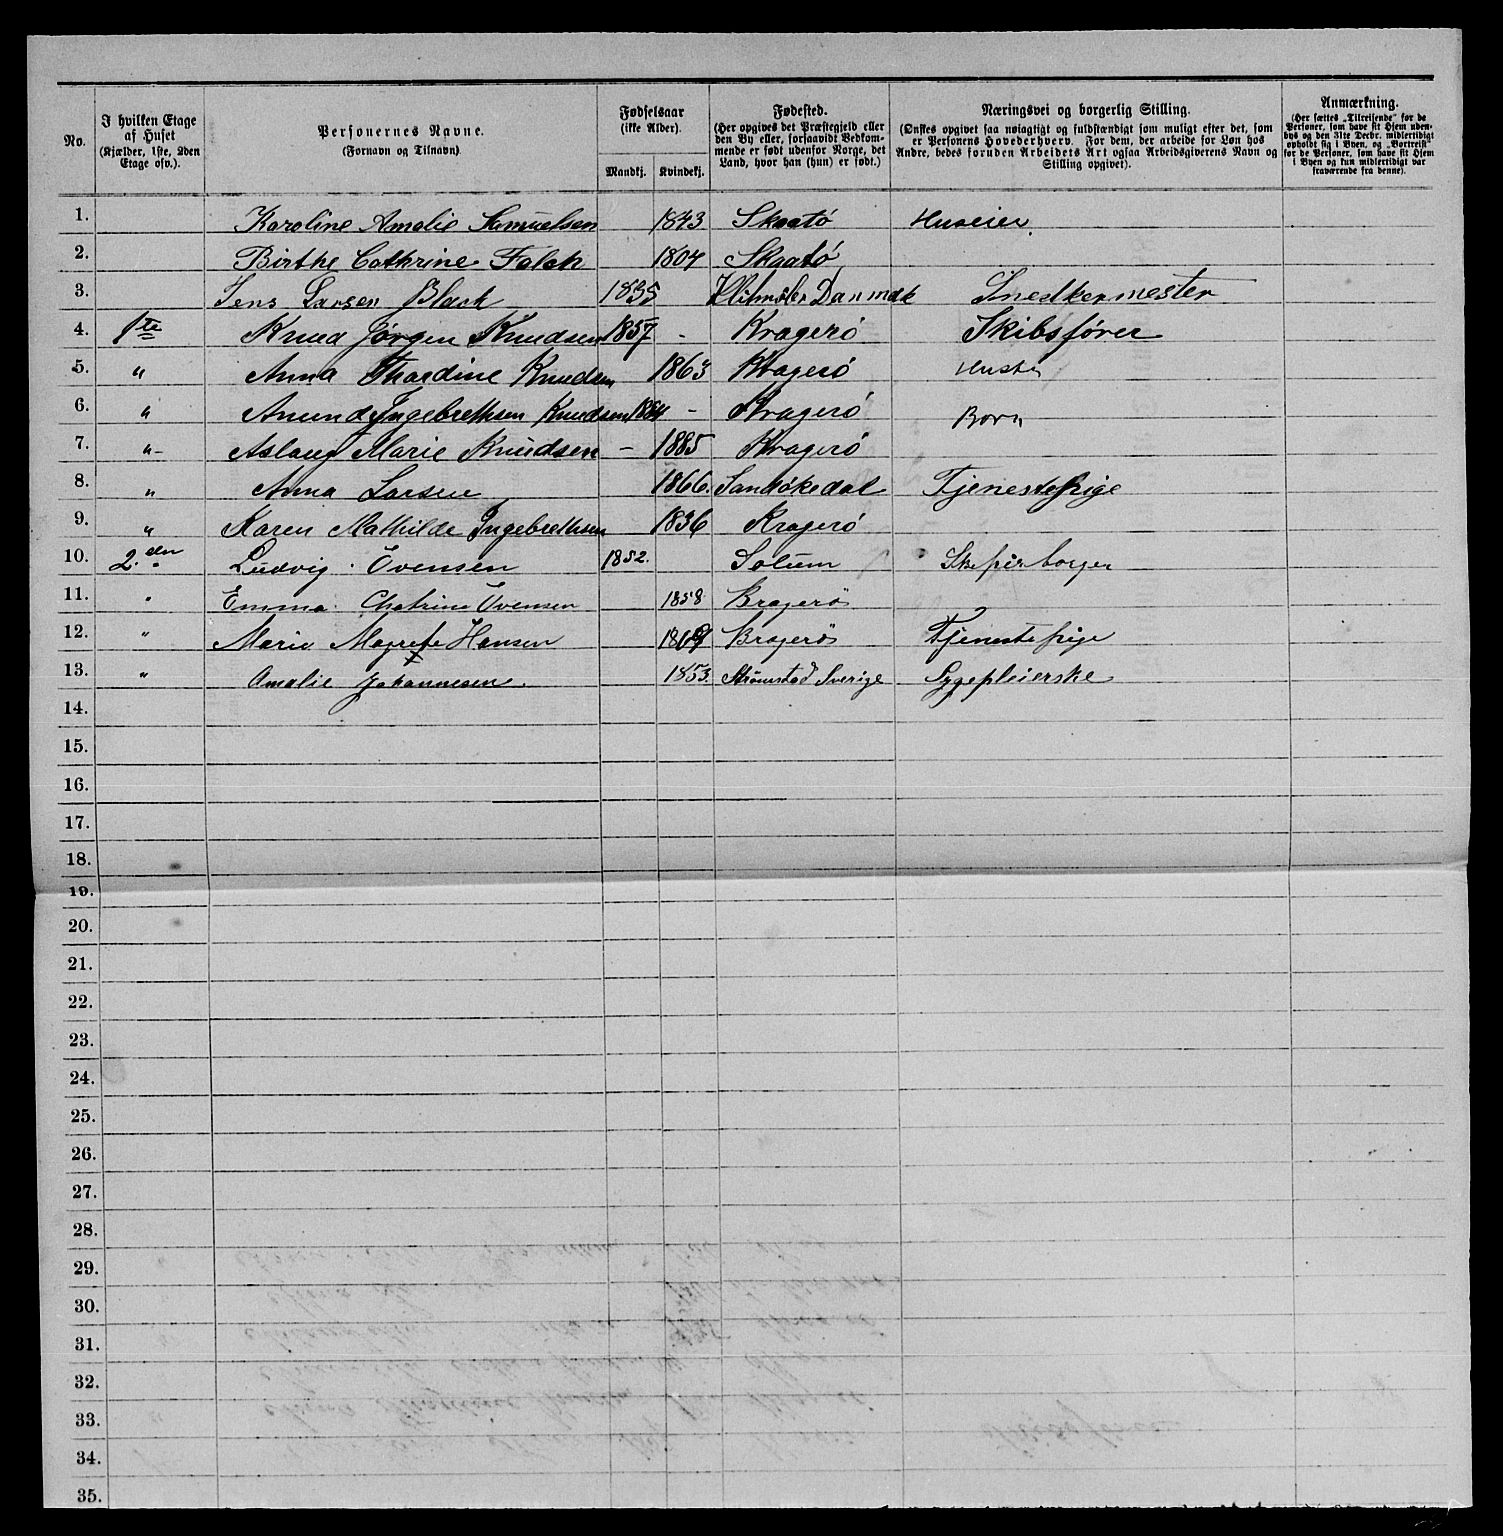 No. I hvilken Etage af Huset (Kjælder, 1ste, 2den Etage osv.). Personernes Navne. (Fornavn og Tilnavn) Fødselsaar (ikke Alder). Mandkj. Kvindekj. Fødested. (Her opgives det Præstegjeld eller den By eller, forsaavidt Vedkommende er født udenfor Norge, det Land, hvor han (hun) er født.) Næringsvei og borgerlig Stilling. (Ønskes opgivet saa nøiagtigt og fuldstændigt som muligt efter det, som er Personens Hovederhverv. For dem, der arbeide for Løn hos Andre, bedes foruden Arbeidets Art ogsaa Arbeidsgiverens Navn og Stilling opgivet). Anmærkning. (Her sættes „Tilreisende“ for de Personer, som have sit Hjem udenbys og den 31te Decbr. midlertidigt opholdt sig i Byen, og „Bortreist“ for de Personer, som have sit Hjem i Byen og kun midlertidigt var fraværende fra denne).
1. Karoline Amalie Samuelsen 1843 Skaatö Huseier.
2. Birthe Cathrine Falck 1804 Skaatö
3. Jens Larsen Black 1835 Klitmöler Danmak Snedkermester
4. 1te Knud Jørgen Knudsen 1857 - Kragerö Skibsförer
5. " Anna Thardine Knudsen 1863 Kragerö Hustr
6. " Amund Ingebrethsen Knudsen 1884 - Kragerö Born
7. " Aslaug Marie Knudsen - 1885 Kragerö
8. " Anna Larsen 1866. Sandökedal Tjenestepige
9. " Karen Mathilde Ingebrethsen 1836 Kragerö
10. 2.den Ludvig Evensen 1852. Solum
11. " Emma Chatrine Evensen 1858 Kragerö
12. " Marie Magrete Hansen Kragerö Tjenestepige
13. " Amalie Johannesen. 1853. Strömstad Sverige Sygepleierske
14.
15.
16.
17.
18.
19.
20.
21.
22.
23.
24.
25.
26.
27.
28.
29.
30.
31.
32.
33.
34.
35.